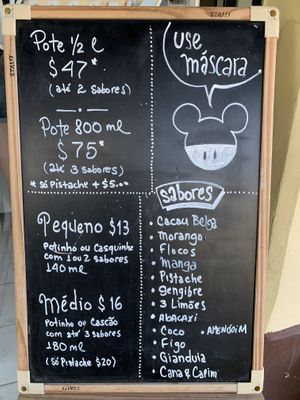 Pote 1/2 l
$47*
(até 2 sabores)
Pote 800 ml
$75*
(até 3 sabores)
* Só Pistache + $5.00
Use
máscara
Sabores
Pequeno $13
Potinho ou Casquinha
com 1 ou 2 sabores
140 ml
Médio $16
Potinho ou Cascão
com até 3 sabores
180 ml
(Só Pistache $20)
• Cacau Belga
• Morango
• Flocos
• Manga
• Pistache
• Gengibre
• 3 Limões
• Abacaxi
• Coco • Amendoim
• Figo
• Gianduia
• Cana & Capim